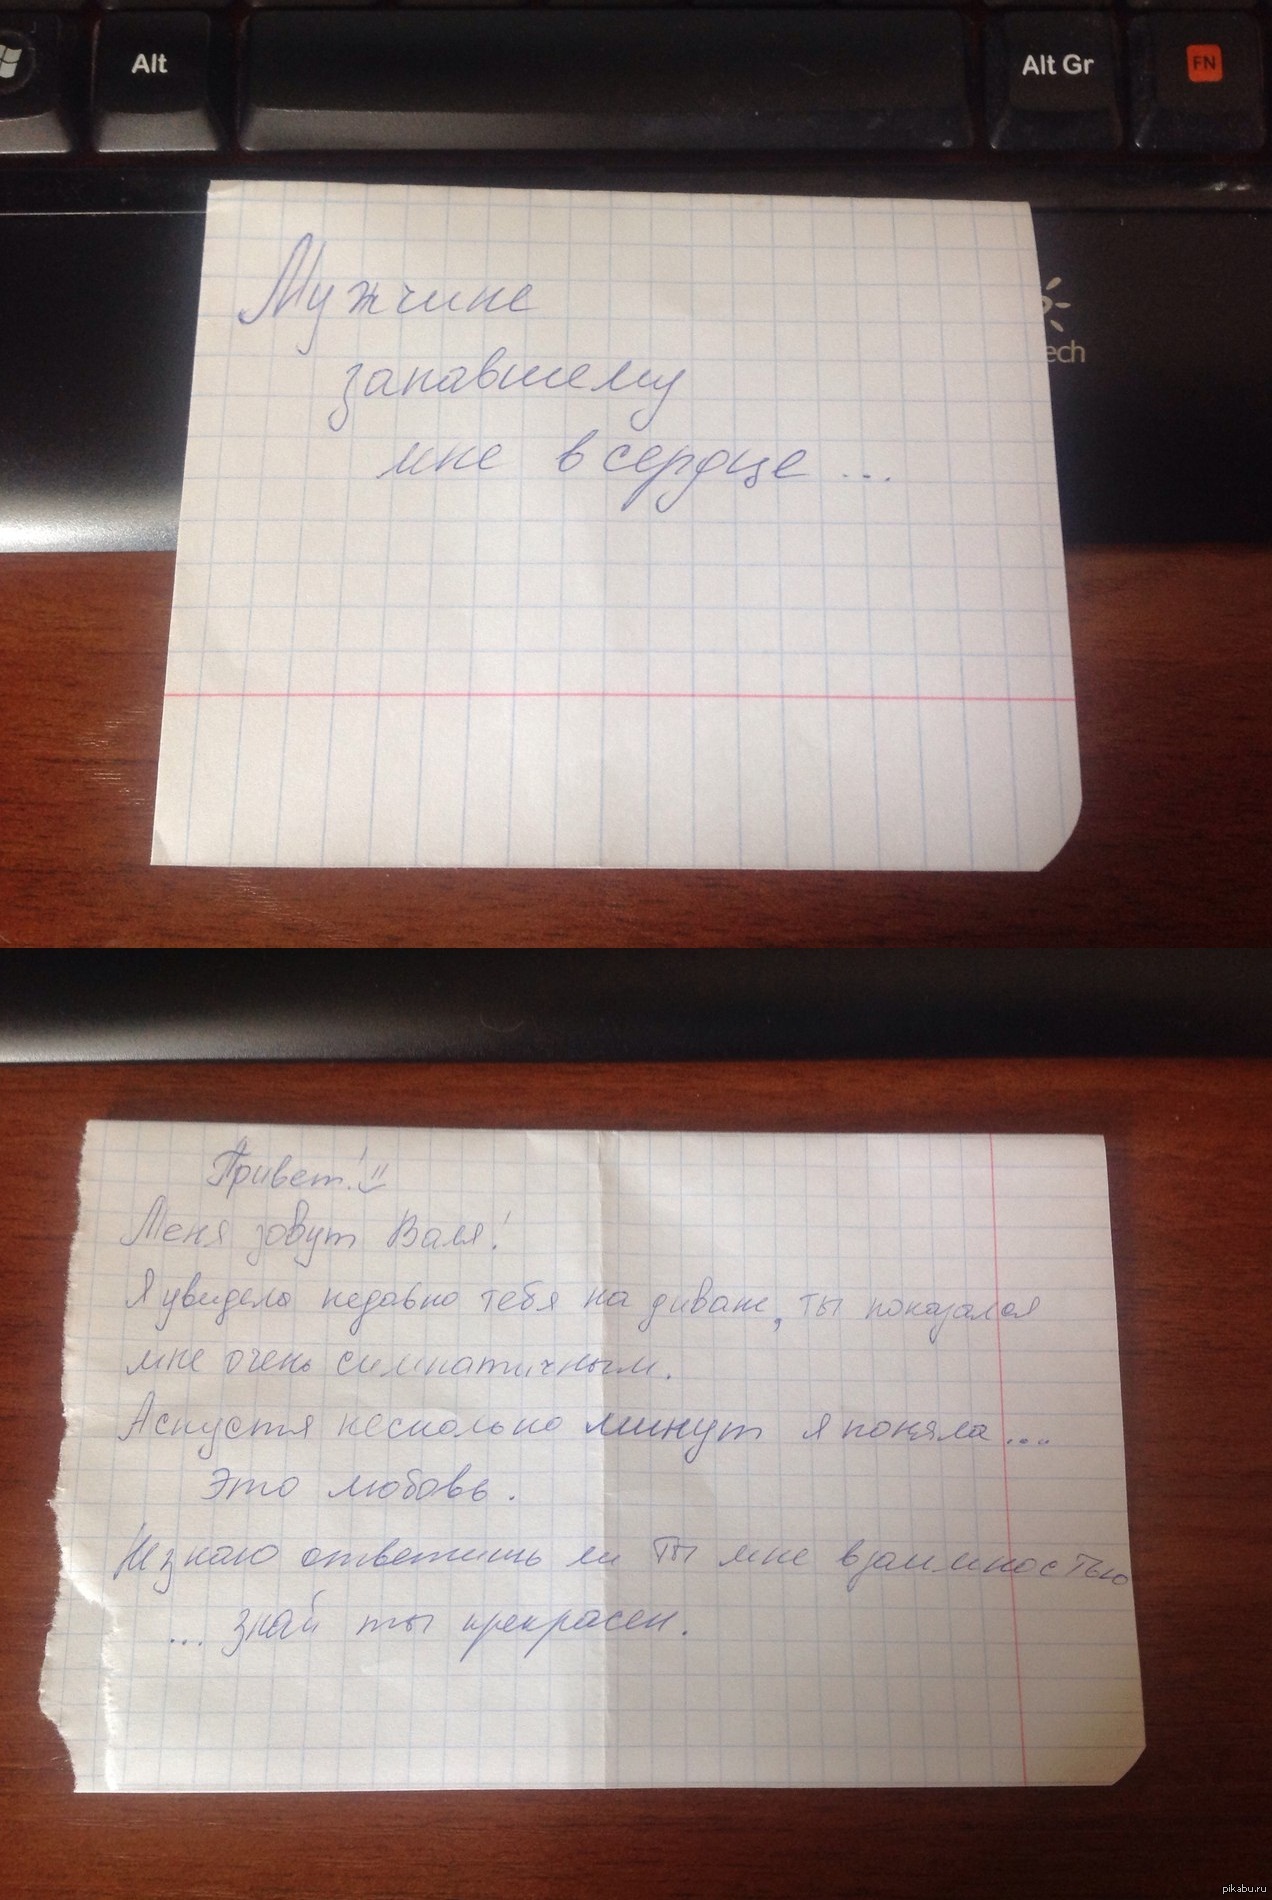 Alt
Alt Gr
FN
ech
Мужчине
запавшему
мне в сердце...
Привет!
Меня зовут Валя!
Я увидела недавно тебя на диване, ты показался
мне очень симпатичным.
А спустя несколько минут я поняла....
Это любовь.
Не знаю ответишь ли ты мне взаимностью
... знай ты прекрасен.
pikabu.ru